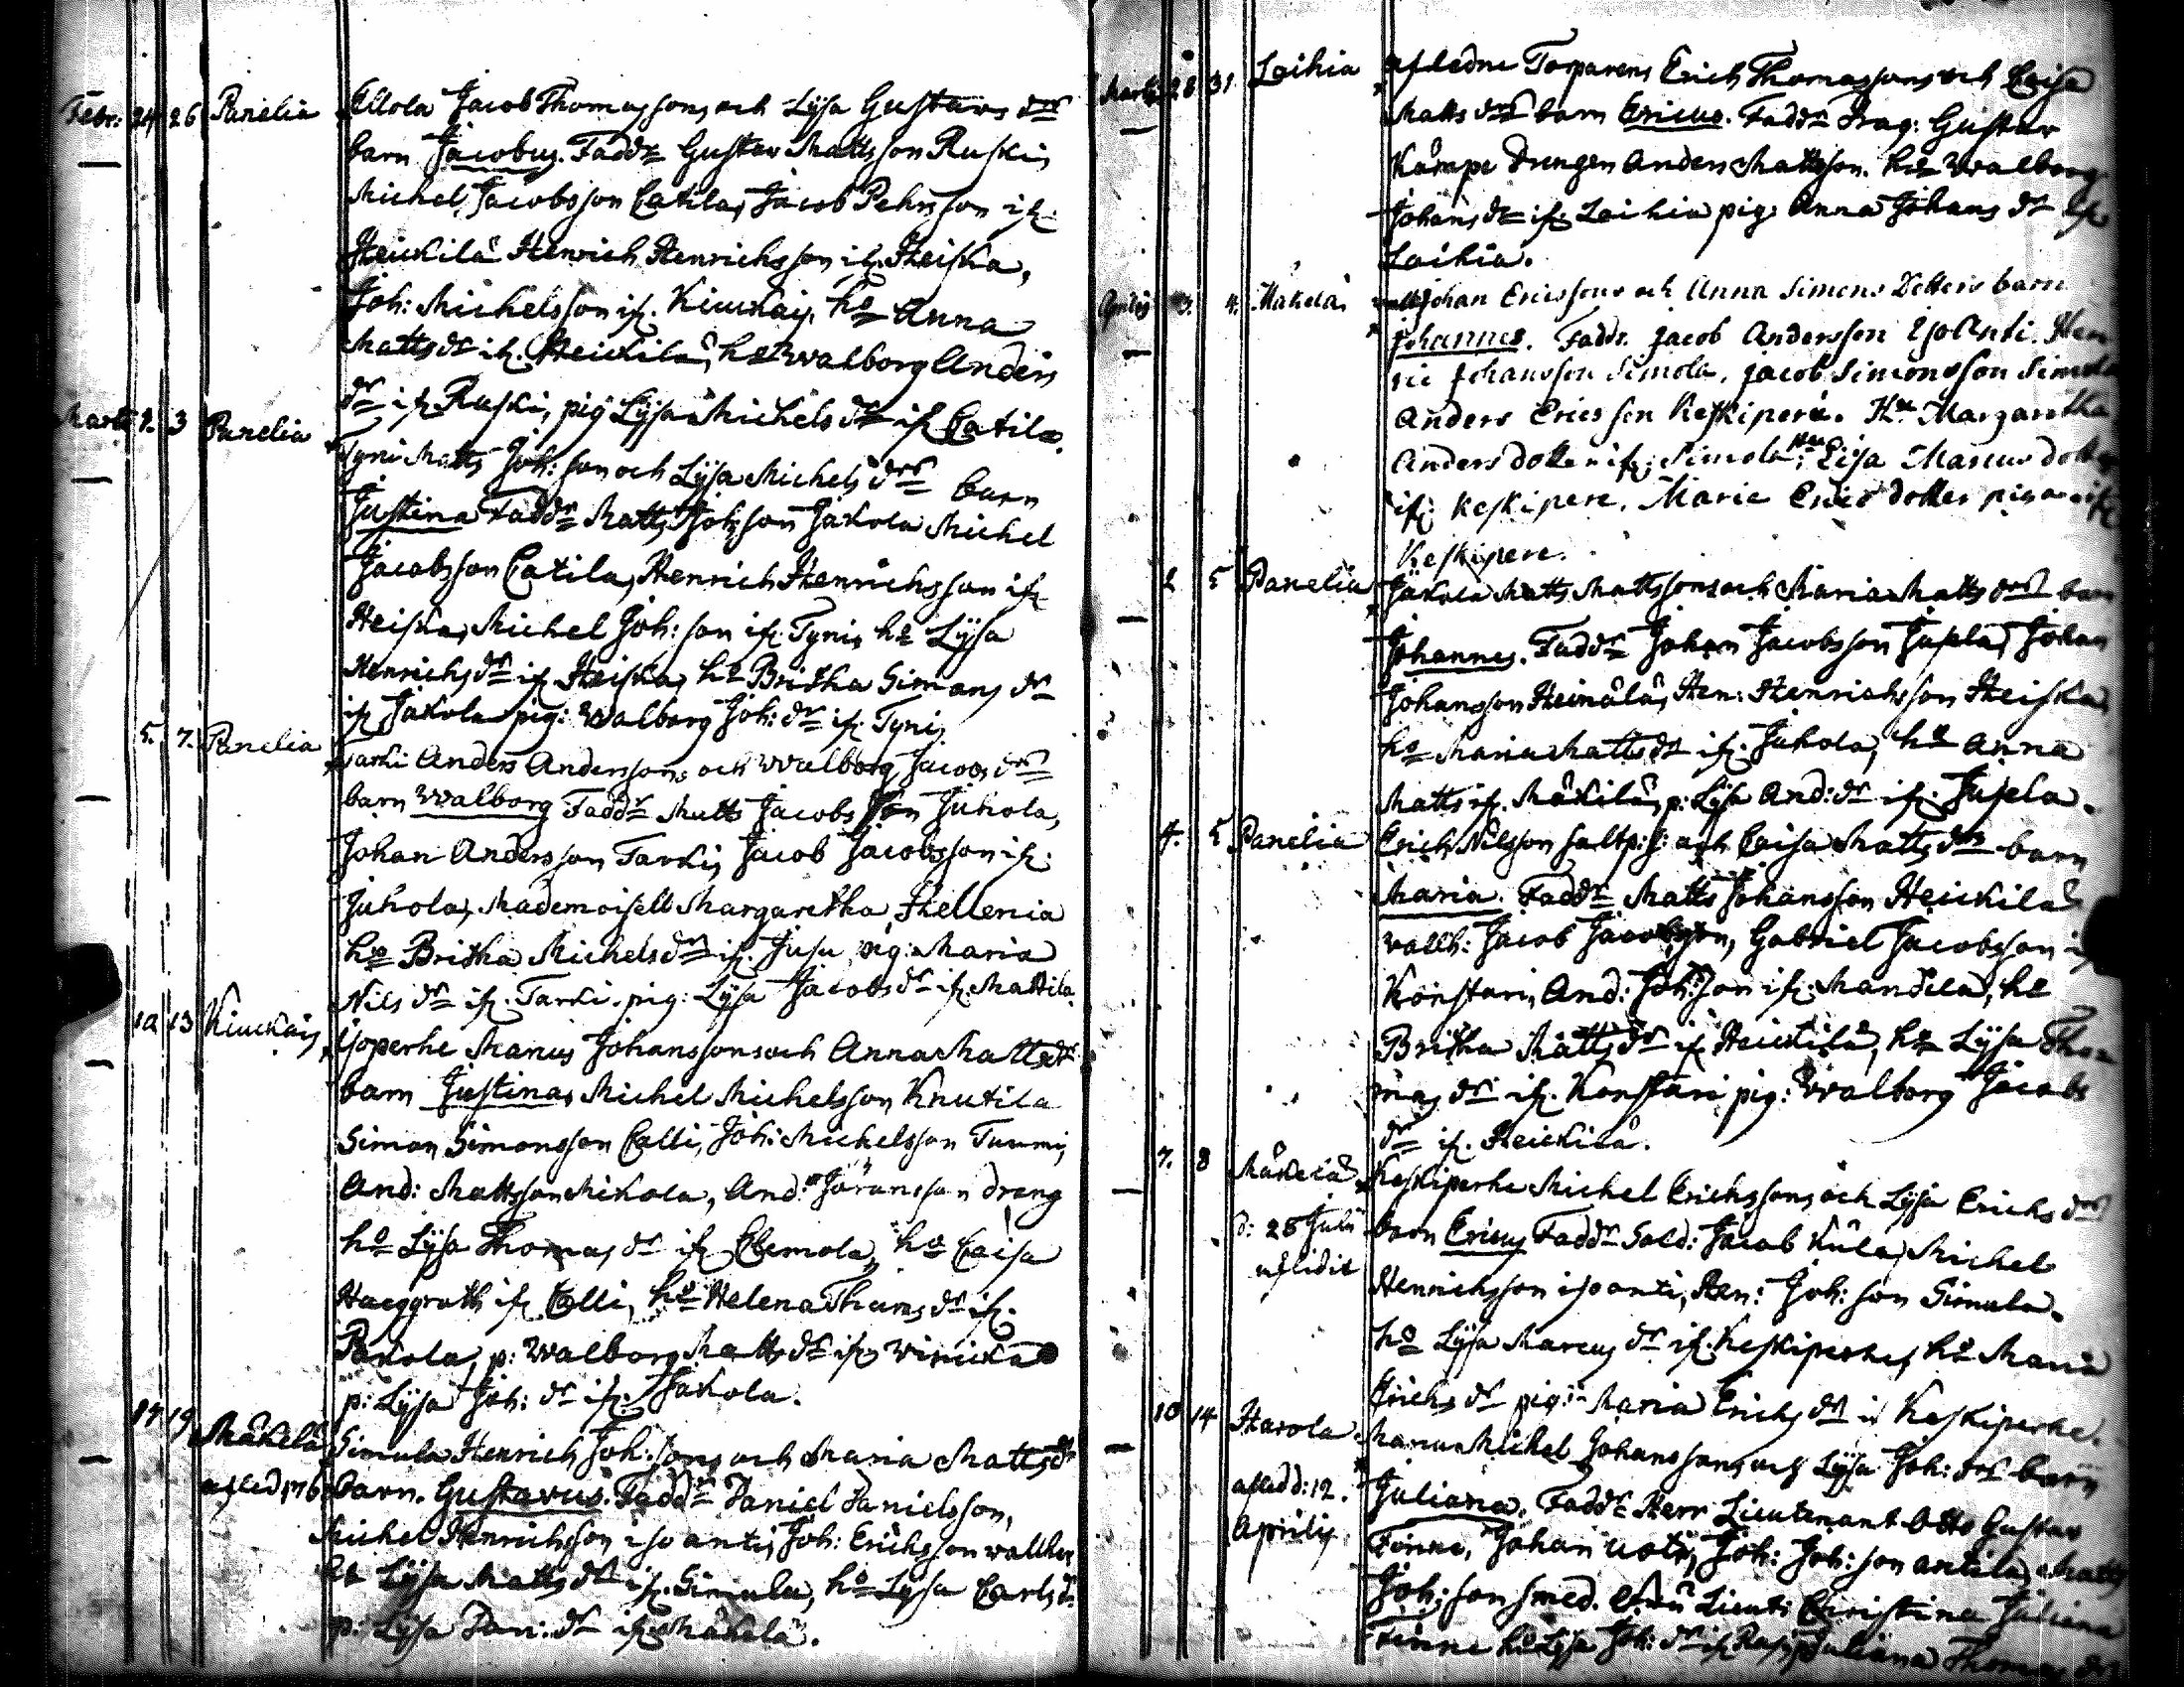 Febr: 24 26 Panelia Ellola Jacob Thomassons och Lysa Gustavs drs
barn Jacobus. Faddr Gustav Mattsson Ruski,
Michel Jacobsson Catila, Jacob Pehrsson ifr.
Heickilä Henrich Henrichsson ifr. Heiska,
Joh: Michelsson ifr. Kiuckais, ho Anna
Matts dr ifr. Heickilä, ho Walborg Anders
dr ifr Ruski, pig Lysa Michels dr ifr Catila.
Martii 2. 3 Panelia Tyni Matts Joh: son och Lysa Michels drs barn
Justina Faddr Matts Joh:son Jakola Michel
Jacobsson Catila, Henrich Henrichsson ifr
Heiska, Michel Joh: son ifr. Tyni, ho Lysa
Henrichs dr ifr Heiska, ho Britha Simons dr
ifr Jakola pig: Walborg Joh: dr ifr Tyni
5. 7. Panelia Tarki Anders Anderssons och Walborg Jacobs drs
barn Walborg Faddr Matts Jacobsson Juhola,
Johan Andersson Tarki, Jacob Jacobsson ifr.
Juhola, Mademoisell Margaretha Hellenia
ho Britha Michels dr ifr. Jusu, pig: Maria
Nils dr ifr. Tarki. pig: Lysa Jacobs dr ifr. Mattila.
10 13 Kiuckais Isoperhe Marcus Johanssons och Anna Matts dr
barn Justina, Michel Michelsson Knutila
Simon Simonsson Calli, Joh: Michelsson Tummi,
And: Mattsson Mikola, And: Göransson dreng
ho Lysa Thomas dr ifr Clemola, ho Caisa
Haeggroth ifr Calli, ho Helena Thoms dr ifr.
Pakola, p: Walborg Matts dr ifr
p: Lysa Joh: dr ifr. Jakola.
17 19 Mäkelä Simula Henrich Joh: sons och Maria Matts dr
barn. Gustavus. Faddr Daniel Danielsson,
Michel Henrichsson iso anti, Joh: Erichsson wallher
ho Lysa Matts dr ifr. Simula, ho Lysa Carls d.
p: Lysa Dan: dr ifr Mäkelä.
Martii 28 31 Laihia afledne Torparens Erich Thomassons och Caisa
Matts drs barn Ericus. Faddr Drag: Gustav
Kämpe Drengen Anders Mattsson. ho Walborg
Johans dr ifr. Laihia pig: Anna Johans dr ifr
Laihia.
Aprilis 3. 4. Mäkelä Johan Ericssons och Anna Simons Dotters barn
Johannes. Faddr. Jacob Andersson Iso Anti. Hen
ric Johansson Simola, Jacob Simonsson Simola
Anders Ericsson Keskiperé. Hu Margaretha
Anders dotter ifr: Simola, Hu: Lisa Marcus dotter
ifr: Keskipere, Maria Erics dotter piga ifr
Keskipere.
2 5 Panelia Jakola Matts Mattssons och Maria Matts drs barn
Johannes. Faddr Johan Jacobsson Jusela, Johan
Johansson Heinälä, Hen: Henrichsson Heiska,
ho Maria Matts dr ifr. Juhola, ho Anna
Matts ifr. Mäkilä, p: Lysa And: dr ifr. Jusela.
4. 5 Panelia Erich Nilsson och Caisa Matts drs barn
Maria. Faddr Matts Johansson Heickilä
wallh: Jacob Jacobsson, Gabriel Jacobsson
Konstari, And: Joh: son ifr: Mandila, ho
Britha Matts dr ifr Heickilä, ho Lysa Tho
mas dr ifr. Konstari pig: Walborg Jacobs
dr ifr. Heickilä.
7. 8 Mäkelä Keskiperhe Michel Erichssons och Lysa Erichs drs
d: 28 Julii barn Ericus Faddr Sold: Jacob Kula, Michel
Henrichsson iso anti, Hen: Joh: son Simula.
ho Lysa Marcus dr ifr. Keskiperhe, ho Maria
Erichs dr pig: Maria Erichs dr i Keskiperhe.
10 14 Harola Manu Michel Johanssons och Lysa Joh: drs barn
afled d: 12. Juliana. Faddr Herr Lieutenant Otto Gustav
Aprilis Finne, Johan Joh: Joh: son antila, Matts
Joh: son smed. Fru Lieut: Christina Juliana
Finne ho Lysa Joh: dr ifr Rasi, Juliana Thomas dr